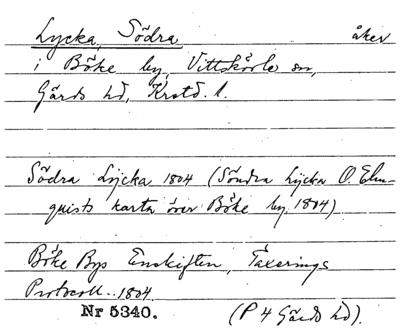 Lycka, Södra åker
i Böke by, Vittskövle sn,
Gärds hd, Krstd. l.
Södra Lycka 1804 (Söndra Lycka O. Elm-
quists karta över Böke by 1804)
Böke Bys Enskiften, Taxerings
Protocoll 1804.
Nr 5340. (P 4 Gärds hd).